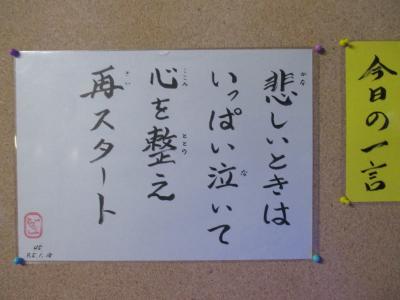 今日の一言
悲しいときは
いっぱい泣いて
心を整え
再スタート
かな
な
こころ
ととの
さい